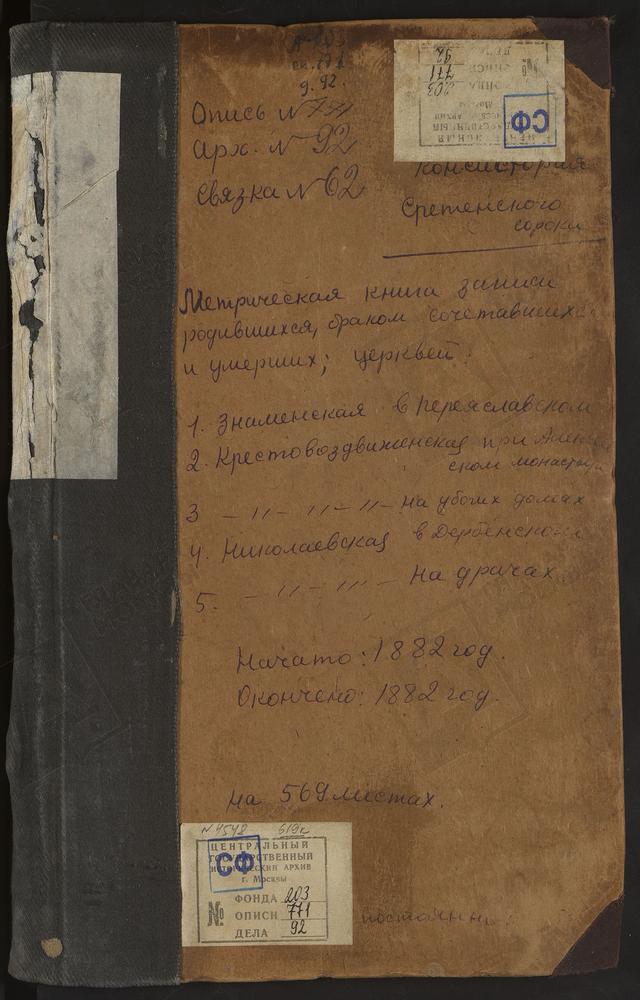 ф. 203
оп. 771
д. 92.
Опись № 771
Арх. № 92
Связка № 62
№
ДЕЛА 92
ОПИСИ 771
ФОНДА 203
г. Москвы
СФ
Консистория
Сретенского
сорока
Метрическая книга записи
родившихся, браком сочетавшихся
и умерших; церквей:
1. Знаменская в Переяславском
2. Крестовоздвиженская при Алексеев
ском монастыре
3 -"-"-"- На убогих домах
4. Николаевская в Дербенском
5. -"-"- На драчах
Начато: 1882 год.
Окончено: 1882 год.
на 569 листах.
N 4548 619к
ЦЕНТРАЛЬНЫЙ
ГОСУДАРСТВЕННЫЙ
ИСТОРИЧЕСКИЙ АРХИВ
г. Москвы
СФ
№
ФОНДА 203
ОПИСИ 771
ДЕЛА 92
постоянно